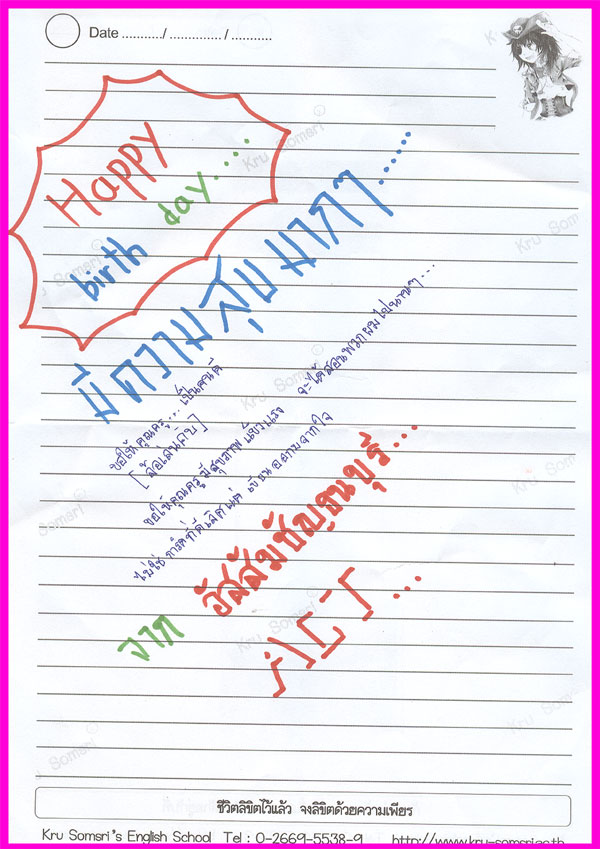 Date ........../ .............. / ...........
Happy
birth day....
มีความสุขมากๆ.....
ขอให้คุณครู... เป็นคนดี
[ล้อเล่นคับ]
ขอให้คุณครูมีสุขภาพแข็งแรง จะได้สอนพวกผมไปนานๆ...
ไม่ใช่การ์ดที่ดีเลิศแต่เขียนออกมาจากใจ
จาก อัสสัมชัญธนบุรี...
ACT...
ชีวิตลิขิตไว้แล้ว จงลิขิตด้วยความเพียร
Kru Somsri's English School Tel : 0-2669-5538-9 http://www.kru-somsri.ac.th
Kru Somsri